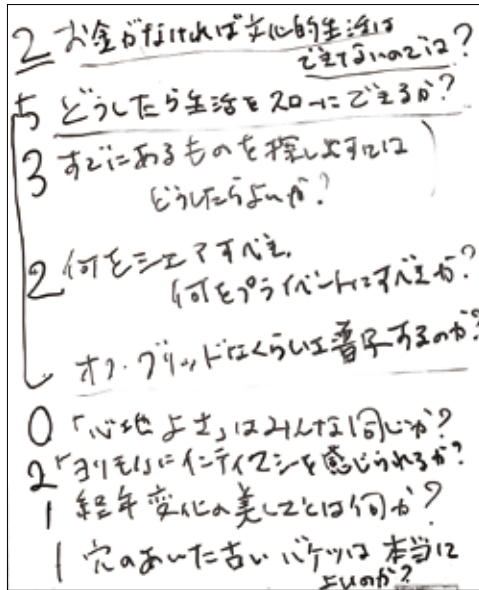 2 お金がなければ文化的生活は
できないのでは？
5 どうしたら生活をスローにできるか？
3 すでにあるものを探し出すには
どうしたらよいか？
2 何をシェアすべき、
何をプライベートにすべきか？
オフ・グリッドなくらしは普及するのか？
0 「心地よさ」はみんな同じか？
2 「ヨリモノにインティマシーを感じられるか？
1 経年変化の美しさとは何か？
1 穴のあいた古いバケツは本当に
よいのか？